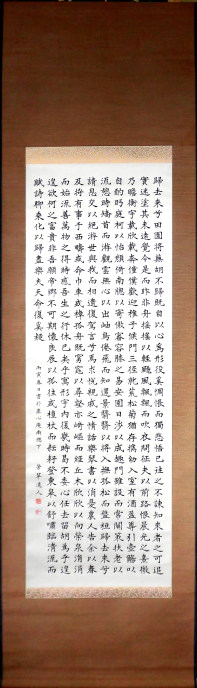 歸去來兮田園將蕪胡不歸既自以心為形役奚惆悵而獨悲悟已往之不諫知來者之可追
實迷塗其未遠覺今是而昨非舟搖搖以輕颺風飄飄而吹衣問征夫以前路恨晨光之熹微
乃瞻衡宇載欣載奔僮僕歡迎稚子候門三徑就荒松菊猶存攜幼入室有酒盈樽引壺觴以
自酌眄庭柯以怡顏倚南窗以寄傲審容膝之易安園日涉以成趣門雖設而常關策扶老以
流憩時矯首而遐觀雲無心以出岫鳥倦飛而知還景翳翳以將入撫孤松而盤桓歸去來兮
請息交以絕游世與我而相違復駕言兮焉求悅親戚之情話樂琴書以消憂農人告余以春
及將有事于西疇或命巾車或棹孤舟既窈窕以尋壑亦崎嶇而經丘木欣欣以向榮泉涓涓
而始流善萬物之得時感吾生之行休已矣乎寓形宇內復幾時曷不委心任去留胡為乎遑
遑欲何之富貴非吾願帝鄉不可期懷良辰以孤往或植杖而耘耔登東皋以舒嘯臨清流而
賦詩聊乘化以歸盡樂夫天命復奚疑
丙寅春日書於南窗下
道人